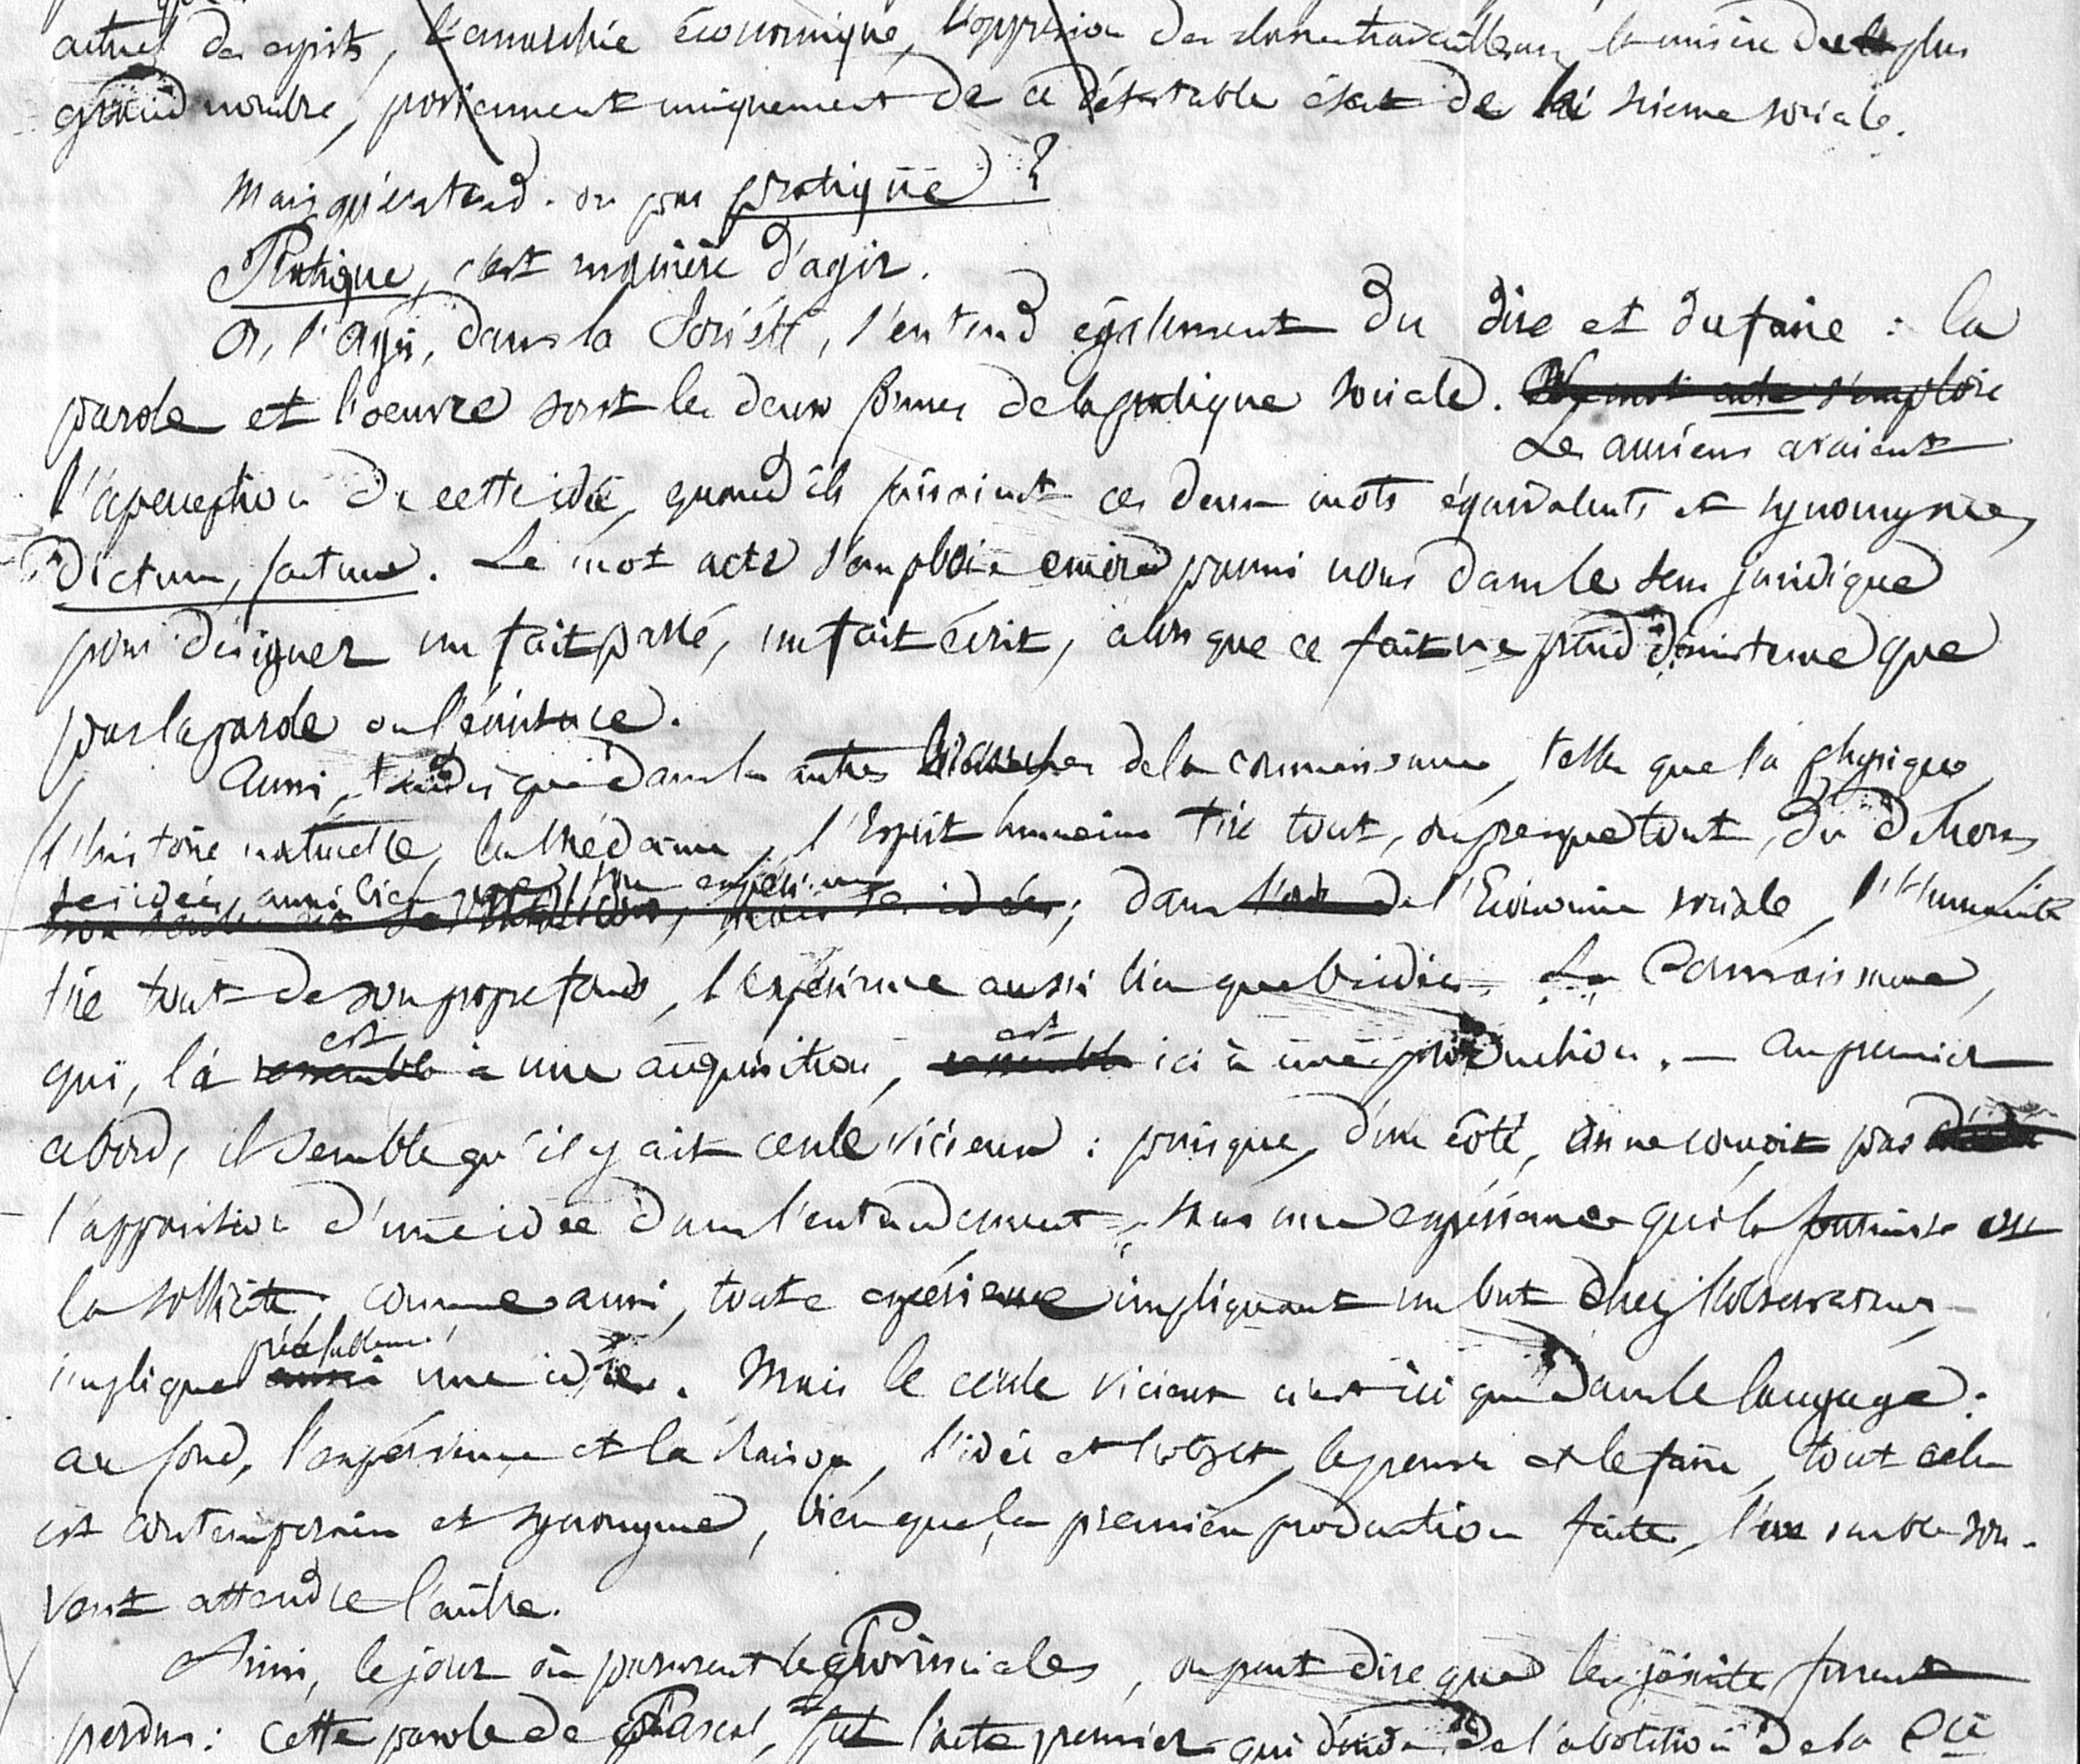 actuel des esprits, l'anarchie économique, l'oppression des classes travailleuses, la misère du plus
grand nombre, proviennent uniquement de ce détestable état de la science sociale.
Mais qu'entend-on par pratique ?
Pratique, c'est manière d'agir.
Or, l'agir, dans la Société, s'entend également du dire et du faire : la
parole et l'oeuvre sont les deux formes de la pratique sociale. Le mot acte s'emploie
Les anciens avaient
l'aperception de cette idée, quand ils faisaient ces deux mots équivalents et synonymes,
dictum, factum. Le mot acte s'emploie encore parmi nous dans le sens juridique
pour désigner un fait parlé, un fait écrit, alors que ce fait ne prend d'existence que
par la parole ou l'écriture.
Aussi, tandis que dans les autres branches de la connaissance, telles que la physique,
l'histoire naturelle, la médecine, l'Esprit humain tire tout, ou presque tout, du dehors,
ses idées aussi bien que son expérience
ses idées; dans l'Economie sociale, l'Humanité
tire tout de son propre fonds, l'expérience aussi bien que les idées. La Connaissance,
est est
qui, là ressemble à une acquisition, ressemble ici à une production. — Au premier
abord, il semble qu'il y ait cercle vicieux : puisque, d'un côté, on ne conçoit pas
l'apparition d'une idée dans l'entendement sans une expérience qui la fournisse ou
la sollicite; comme aussi, toute expérience impliquant un but chez l'observateur,
implique aussi une idée. Mais le cercle vicieux n'est ici que dans le langage :
au fond, l'expérience et la raison, l'idée et l'objet, le penser et le faire, tout cela
est contemporain et synonyme, bien que, la première production faite, l'un semble sou-
vent attendre l'autre.
Ainsi, le jour où parurent les Provinciales, on peut dire que les jésuites furent
perdus : cette parole de Pascal, fut l'acte premier qui décida de l'abolition de la Cie